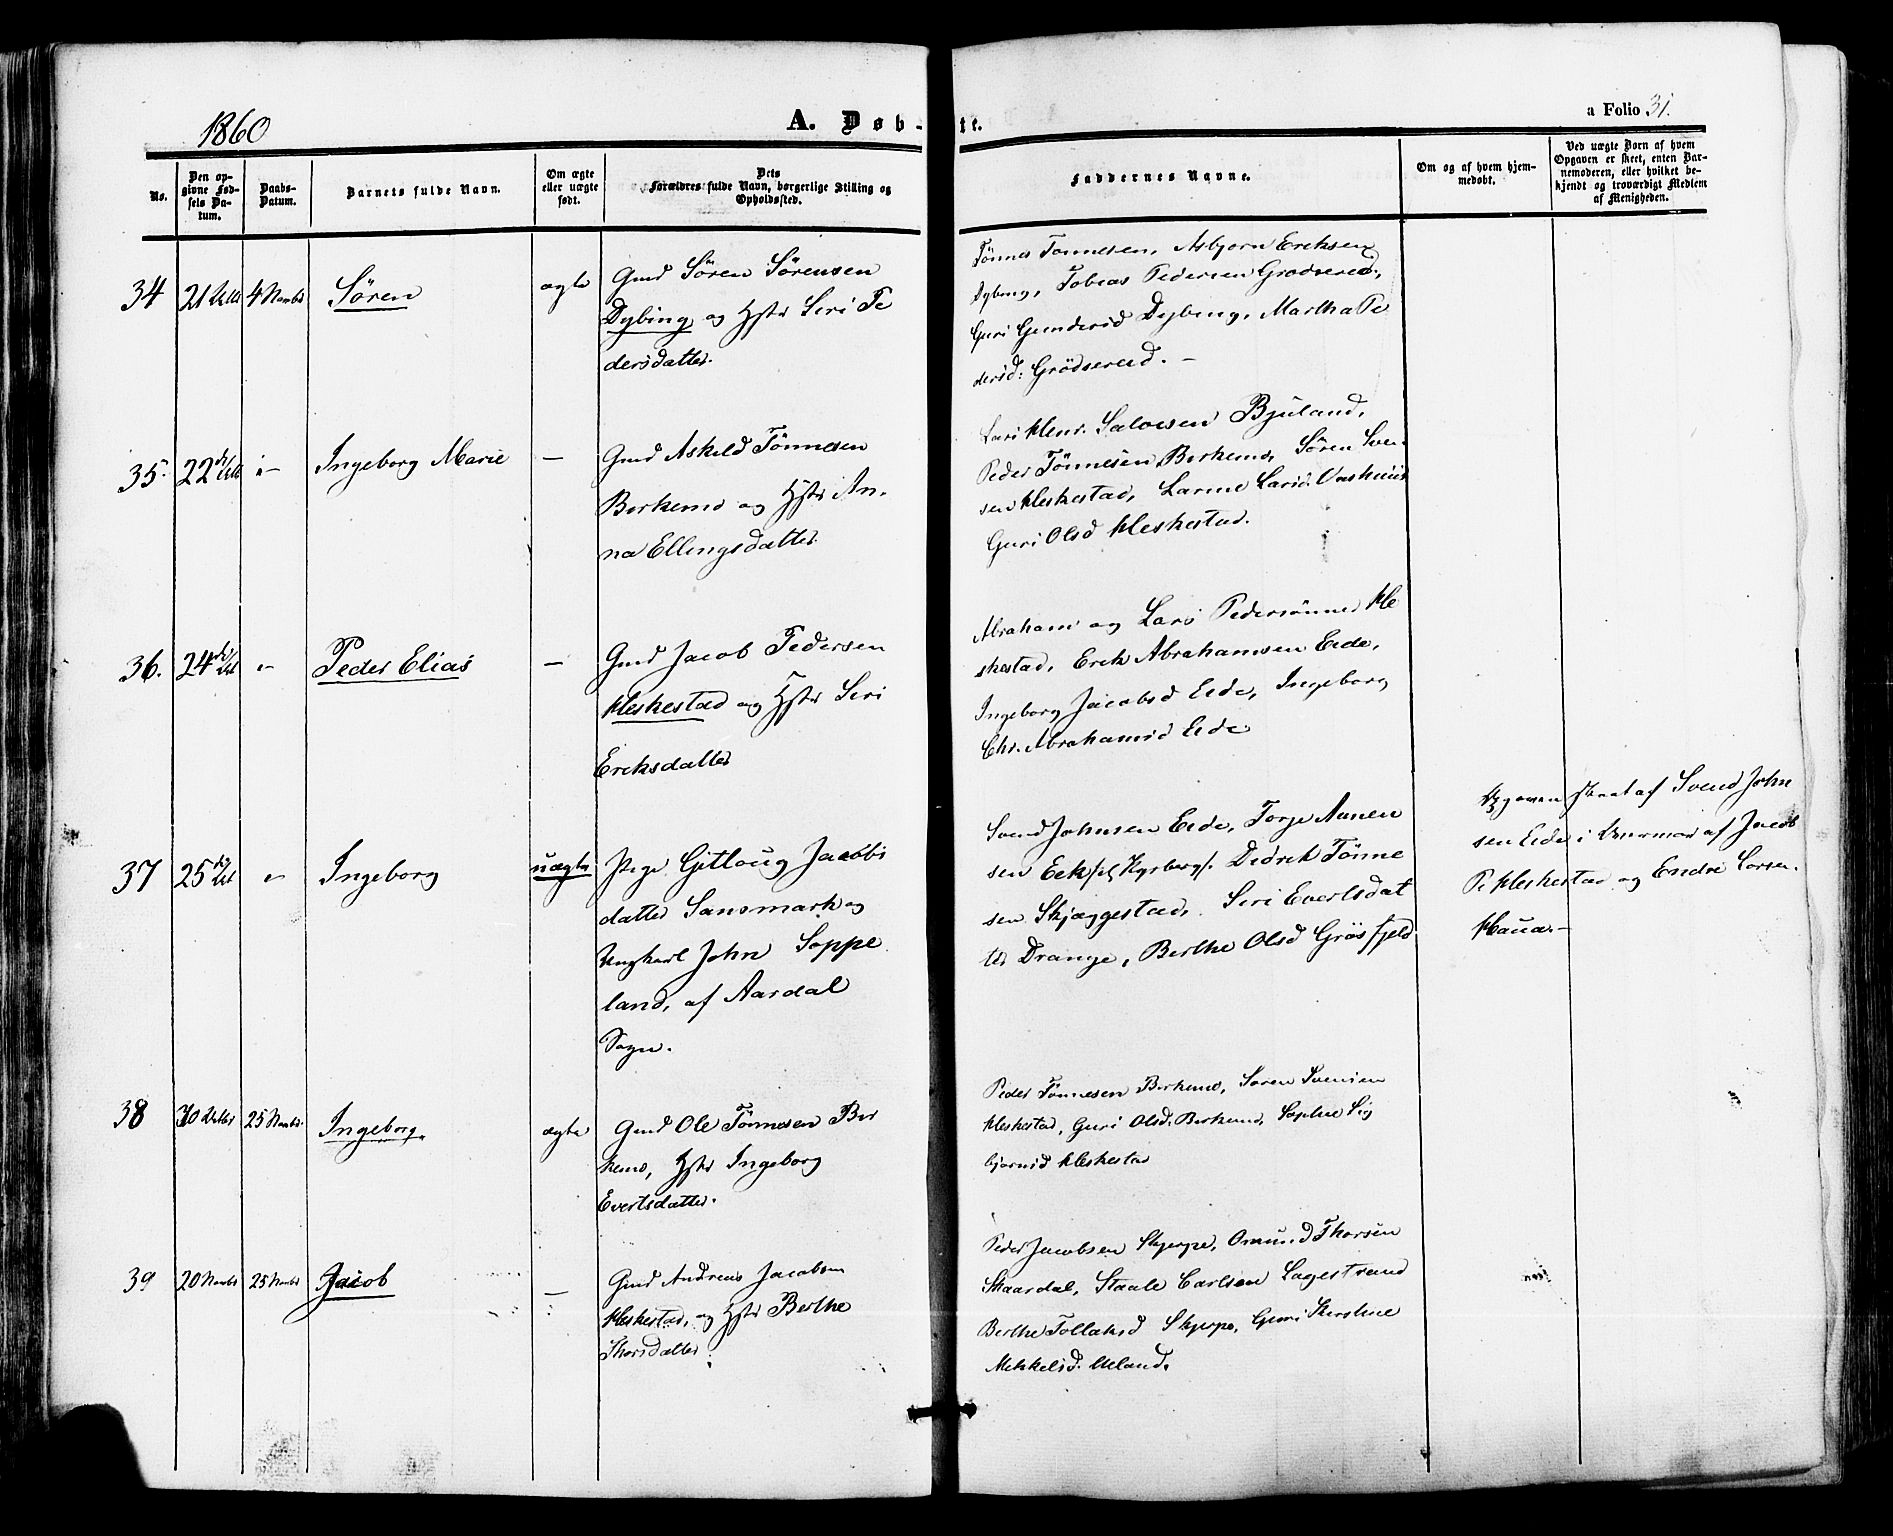 1860
A. Døb-
te.
a Folio 31.
No.
Den op-
givne Fød-
sels Da-
tum.
Daabs-
Datum.
Barnets fulde Navn.
Om ægte
eller uægte
født.
Dets
Forældres fulde Navn, borgerlige Stilling og
Opholdssted.
Faddernes Navne.
Om og af hvem hjem-
medøbt.
Ved uægte Born af hvem
Opgaven er skeet, enten Bar-
nemoderen, eller hvilket be-
kjendt og troværdigt Medlem
af Menigheden.
34
21
4 Novbr
Sören
ægte
Gmd Sören Sörensen
Dybing og Hstr Siri Pe
dersdatter.
Tönnes Tönnesen, Asbjørn Eriksen
Dybing, Tobias Pedersen Grødsered,
Guri Gundersd Dybing, Martha Pe
dersd: Grödsered. –
35
22
Ingeborg Marie
–
Gmd Askeld Tönnesen
Birkemo og Hstr An-
na Ellingsdatter
Salvesen Bjuland,
Peder Tönnesen Birkemo, Sören Sven-
sen Hleskestad, Larsd.
Guri Olsd Hleskestad.
36.
24
Peder Elias
–
Gmd Jacob Pedersen
Hleskestad og Hstr Siri
Eriksdatter
Abraham og Lars Pedersönner Hle
skestad, Erik Abrahamsen Eide,
Ingeborg Jacobsd Eide, Ingeborg
Chr. Abrahamsd Eide
37
25
Ingeborg
uægte
Pige Gitloug Jacobs
datter Sandsmark og
Ungkarl John Soppe
land, af Aardal
Sogn.
Svend Johnsen Eide, Torje Aanen
sen Eek Didrik Tönne
sen Skjæggestad, Siri Evertsdat
ter Drange, Berthe Olsd Grösfjeld
Opgaven skeet af Svend John
sen Eide i Nærvær af Jacob
P. Hleskestad og Endre Larsen
Haua. –
38
30 Octbr
25 Novbr.
Ingeborg.
ægte
Gmd Ole Tönnesen Bir
kemo, Hstr Ingeborg
Evertsdatter.
Peder Tönnesen Birkemo, Sören Svensen
Hleskestad, Guri Olsd. Birkemo, Sophie Sig
bjørnsd Hleskestad
39
20 Novbr
25 Novbr
Jacob
–
Gmd Andreas Jacobsen
Hleskestad, og Hstr Berthe
Thorsdatter
Peder Jacobsen Skjerpe, Omund Thorsen
Skaardal, Staale Carlsen Lagestrand
Berthe Tollaksd Skjerpe, Guri Kirstine
Mikkelsd. Ueland.